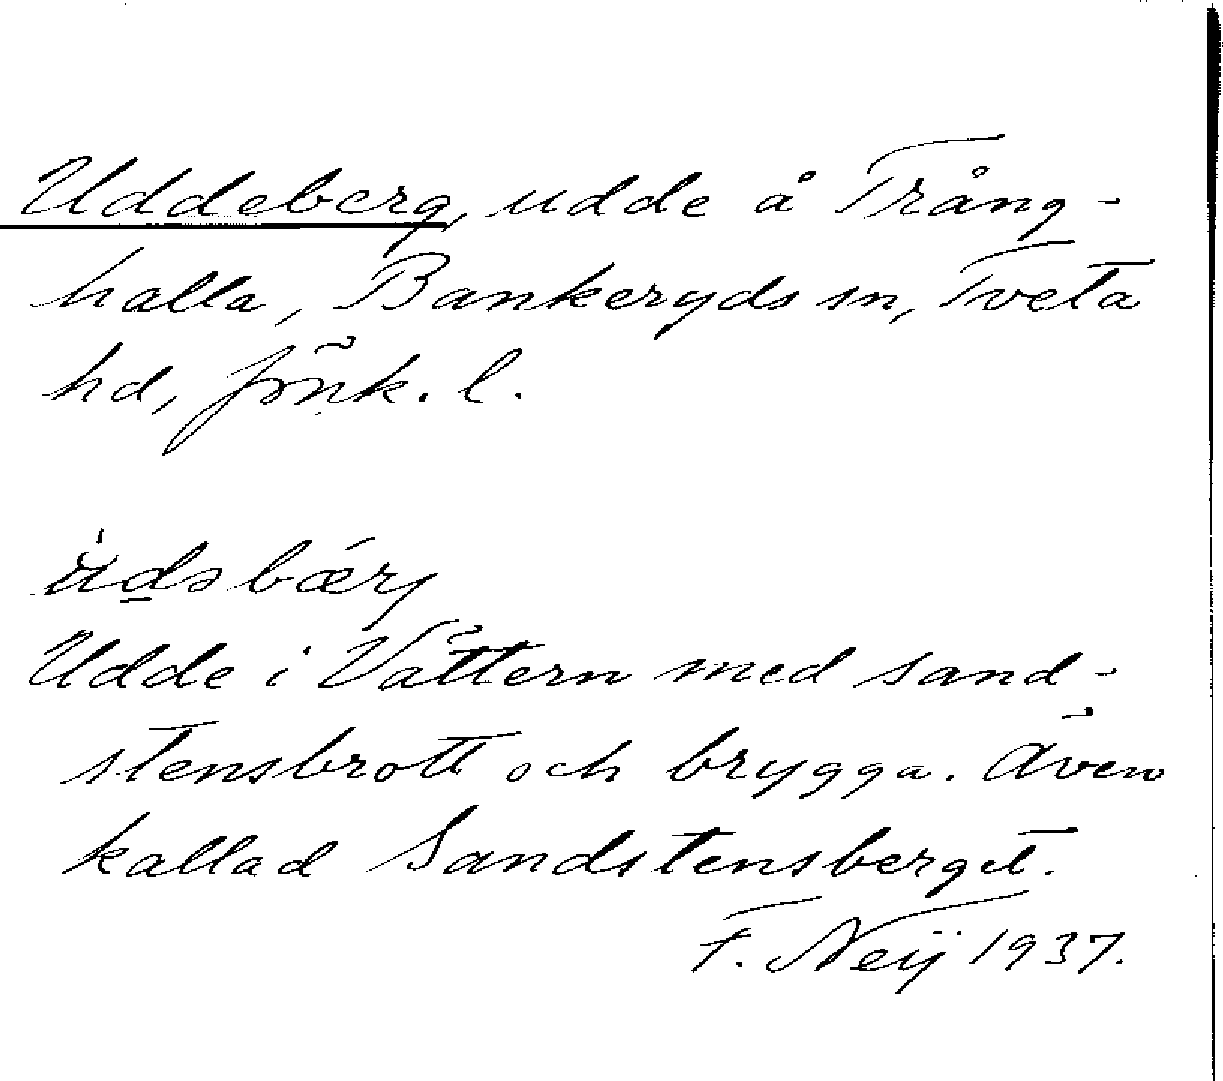 Uddeberg, udde å Trång-
halla, Bankeryds sn, Tveta
hd, Jönk. l.
Udde i Vättern med sand-
stensbrott och brygga. Även
kallad Sandstensberget.
F. Neij 1937.